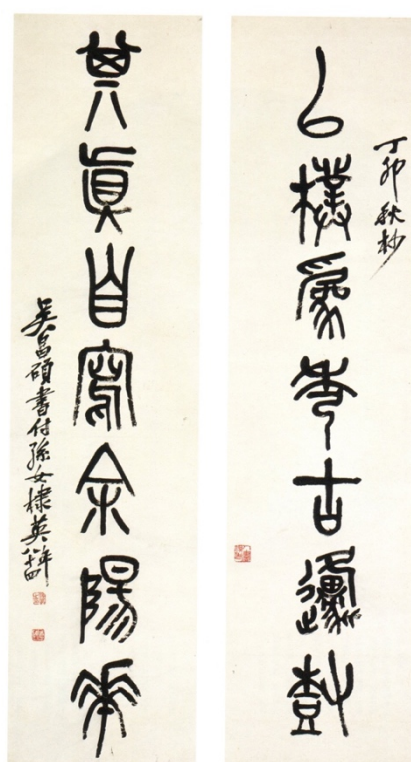 丁卯秋杪
以樸為秀古邍尌
其真自寫余陽華
吳昌碩書付孫女棣英年八十四